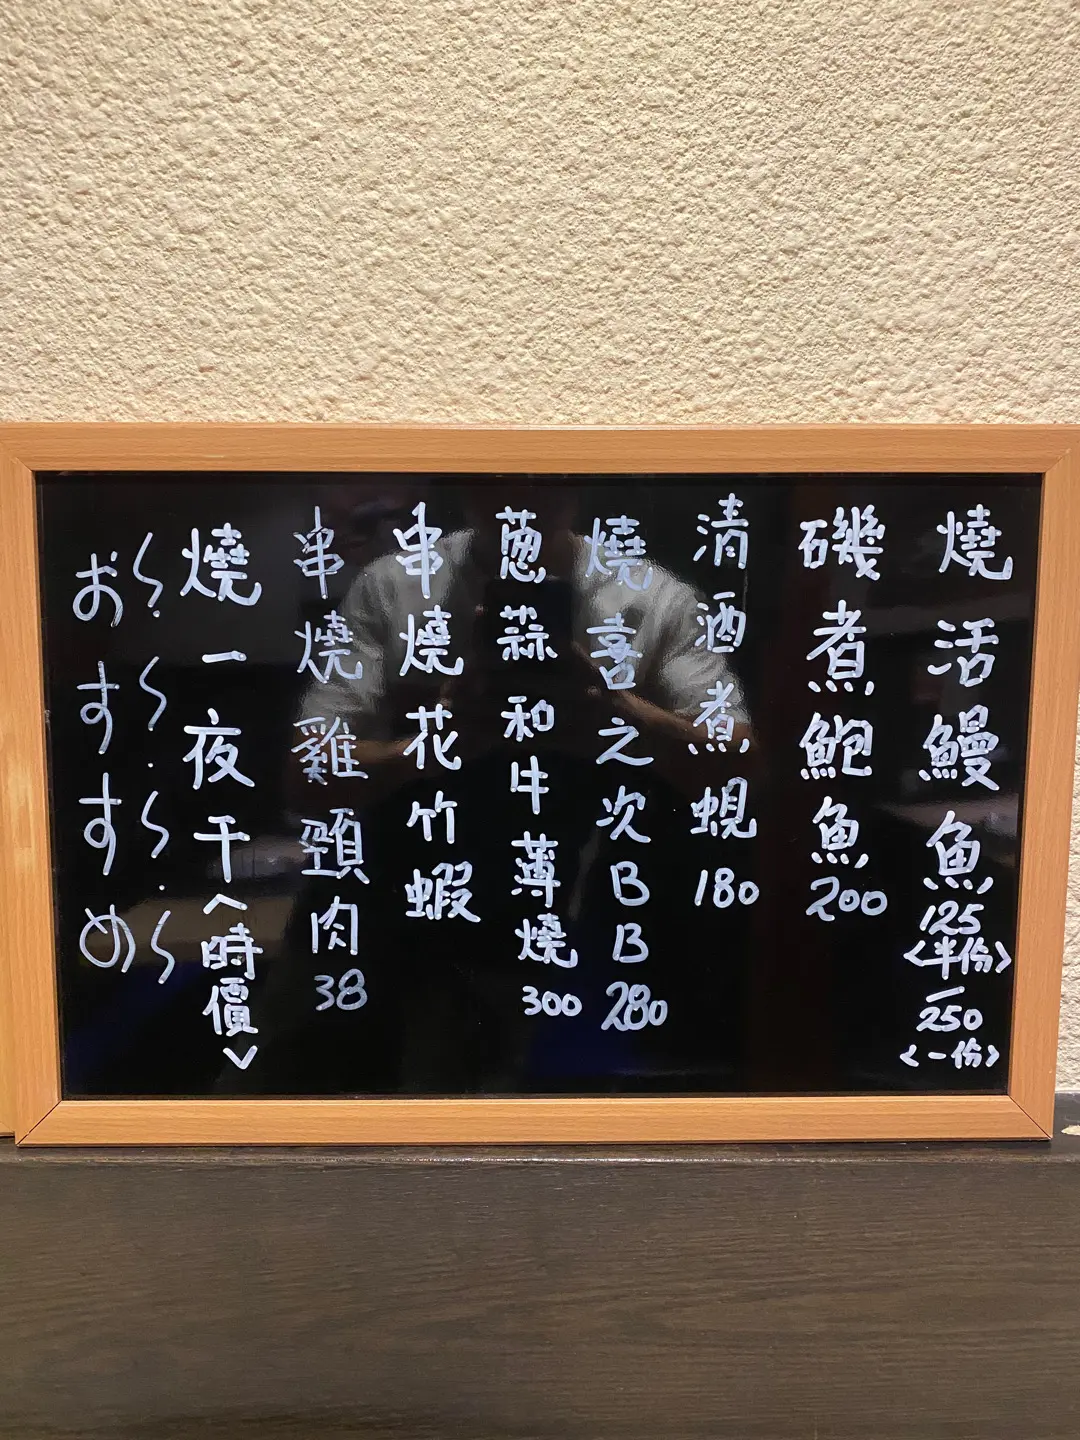 燒活鰻魚
125
<半份>
250
<一份>
磯煮鮑魚200
清酒煮蜆180
燒喜之次BB280
蔥蒜和牛薄燒300
串燒花竹蝦
串燒雞頸肉38
燒一夜干<時價>
おすすめ